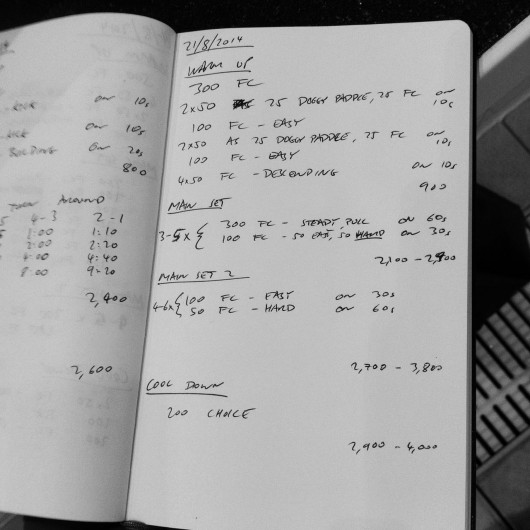 - KICK on 10s
- KICK on 10s
- BUILDING on 20s
800
TURN AROUND
4-3 2-1
1:00 1:10
2:00 2:20
4:00 4:40
8:00 9:20
2,400
2,600
21/8/2014
WARM UP
300 FC
2x50 AS 25 DOGGY PADDLE, 25 FC on 10s
100 FC - EASY
2x50 AS 25 DOGGY PADDLE, 25 FC on 10s
100 FC - EASY
4x50 FC - DESCENDING on 10s
900
MAIN SET
3-5x { 300 FC - STEADY, PULL on 60s
100 FC - 50 EASY, 50 HARD on 30s
2,100 - 2,900
MAIN SET 2
4-6x { 100 FC - EASY on 30s
50 FC - HARD on 60s
2,700 - 3,800
COOL DOWN
200 CHOICE
2,900 - 4,000